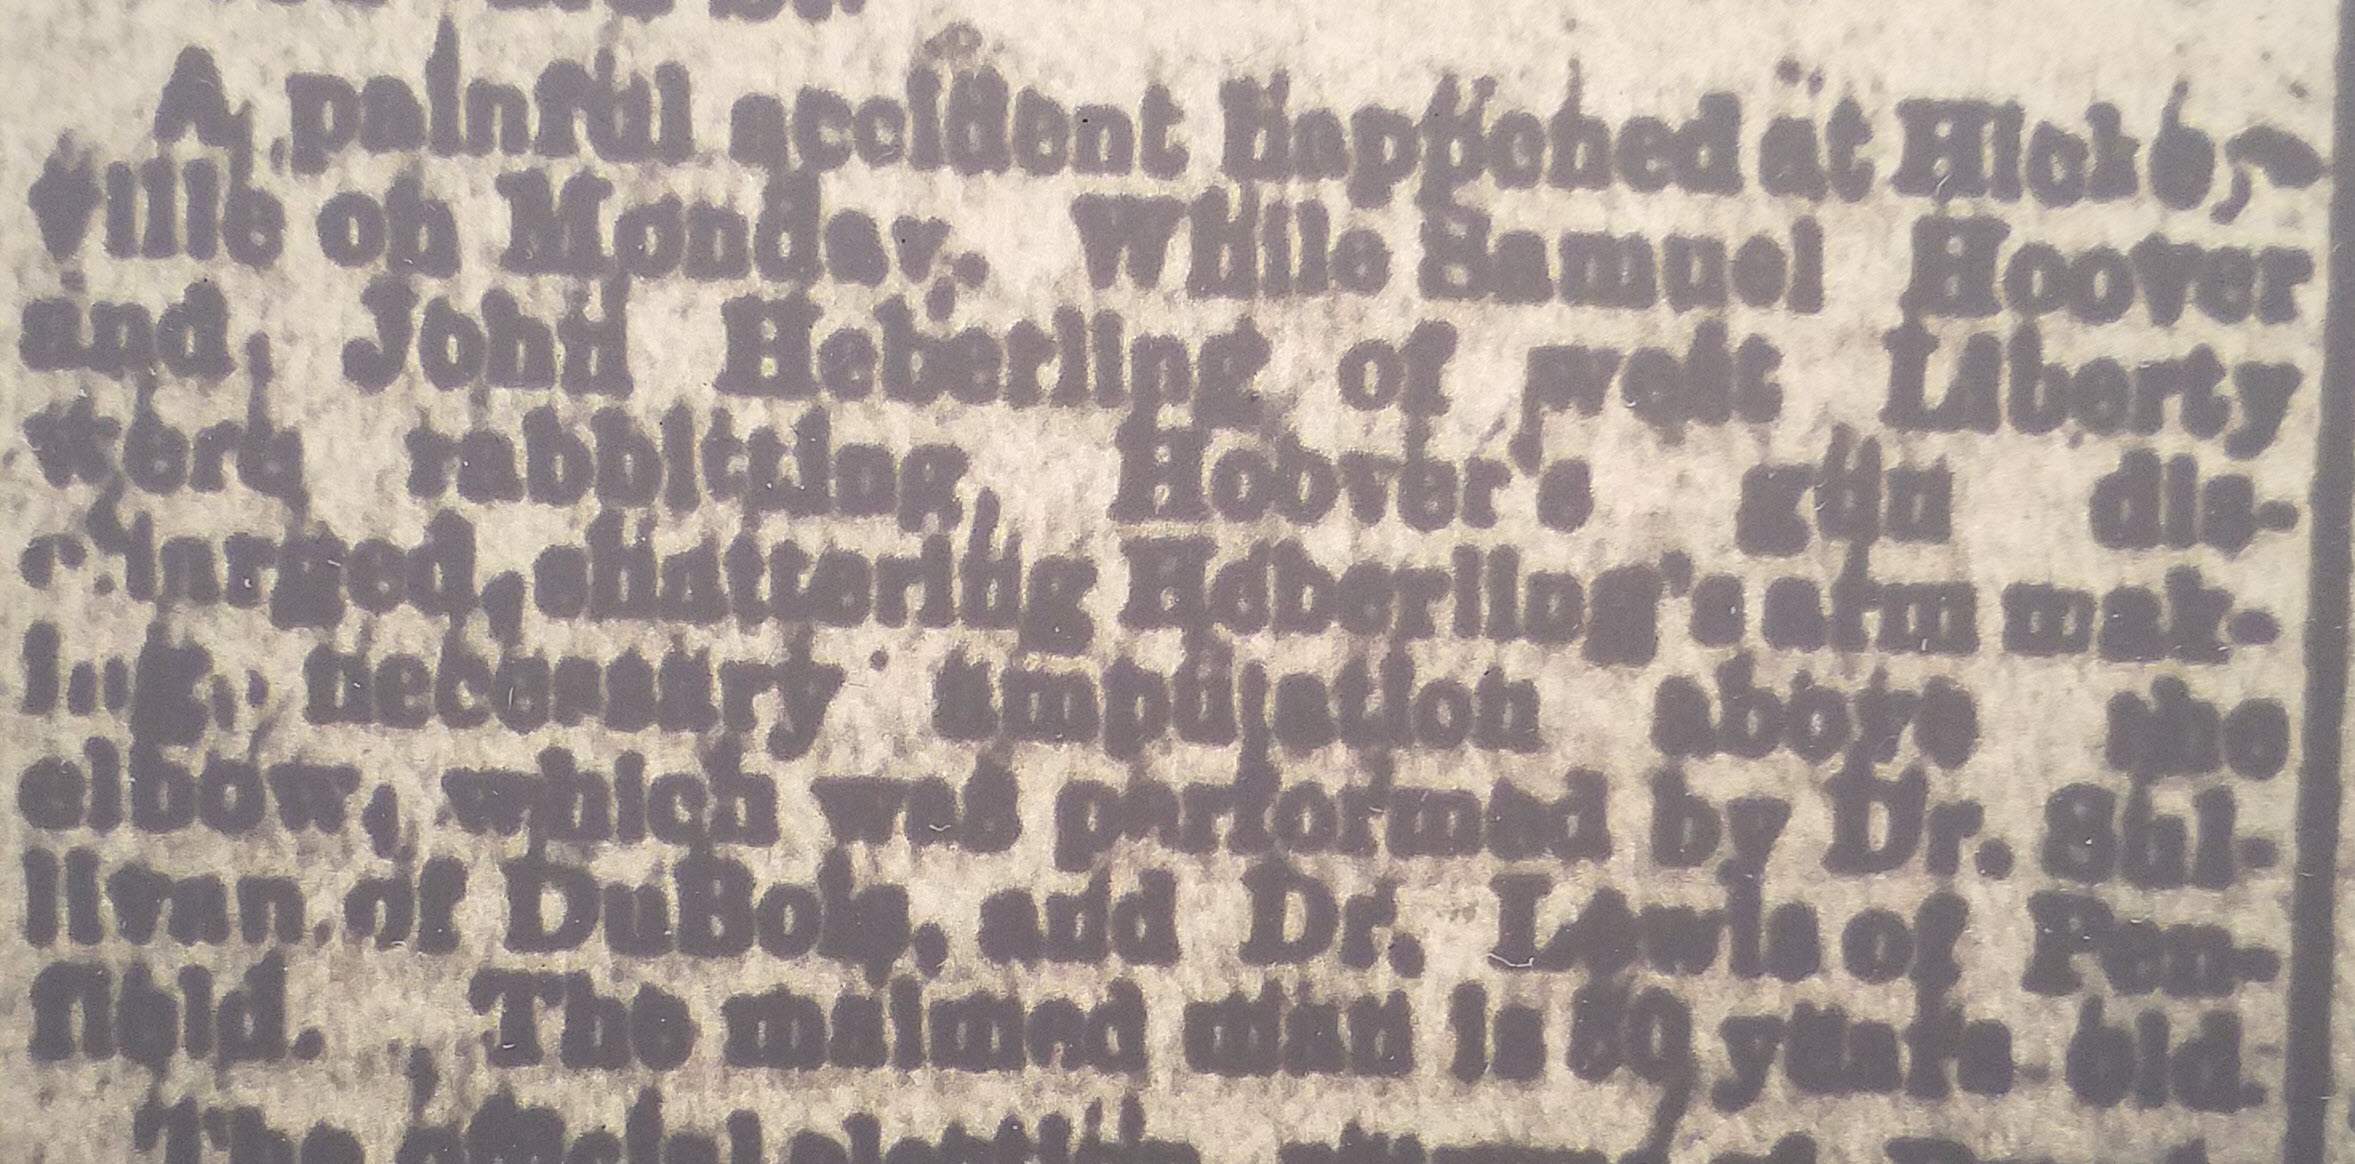 A painful accident happened at Hickory
ville on Monday. While Samuel Hoover
and John Heberling of west Liberty
were rabbitting, Hoover's gun dis-
charged, shattering Heberling's arm mak-
ing necessary amputation above the
elbow, which was performed by Dr. Sul-
livan of DuBois, and Dr. Lewis of Pen-
field. The maimed man is years old.
The official election